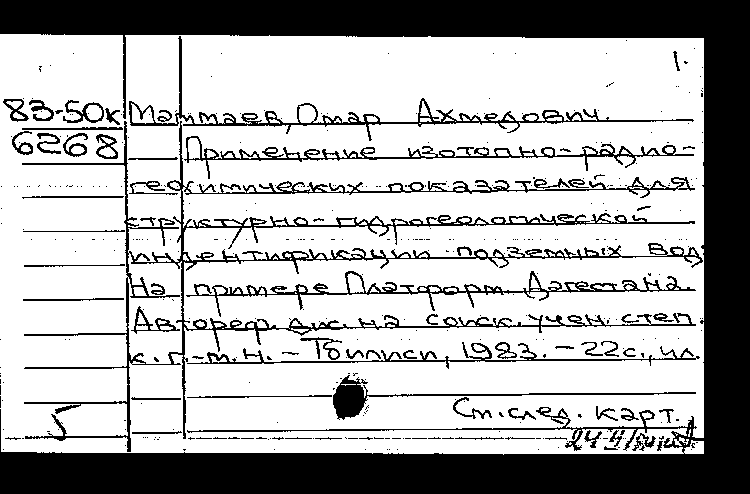 1.
83-50к Маммаев, Омар Ахмедович.
6268 Применение изотопно-радио-
геохимических показателей для
структурно-гидрогеологической
индентификации подземных вод
На примере Платформ. Дагестана.
Автореф. дис. на соиск. учен. степ.
к. г.-м. н. – Тбилиси, 1983. – 22с., ил.
5 См. след. карт.